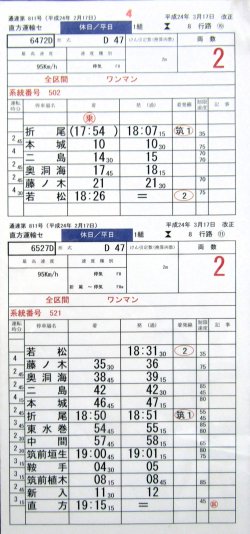 4
通達第 811号 (平成24年 2月17日) 平成24年 3月17日 改正
直方運輸セ 休日/平日 1組 8 行路
6472D 形式 D 47 けん引定数(換算両数) 両数
最高速度 速度種別 2
95Km/h 停気
全区間 ワンマン
系統番号 502
運転時分 停車場名 着 発(通) 着発線 制限速度 記事
折尾 (17:54) 18:07 15 筑1 35
2 45 本城 10 10 30
3 45 二島 14 30 15 75
2 45 奥洞海 17 45 18 15
2 45 藤ノ木 21 21 30 70
4 30 若松 18:26 = 2 75
通達第 811号 (平成24年 2月17日) 平成24年 3月17日 改正
直方運輸セ 休日/平日 1組 8 行路
6527D 形式 D 47 けん引定数(換算両数) 両数
最高速度 速度種別 2
95Km/h 停気
若松~折尾 停気
全区間 ワンマン
系統番号 521
運転時分 停車場名 着 発(通) 着発線 制限速度 記事
若松 18:31 30 2 35
4 藤ノ木 35 30 36
奥洞海 38 45 39 15
二島 42 42 30
本城 46 15 47 15
折尾 18:50 18:51 筑1
東水巻 54 45 55 15
中間 57 45 58 15
筑前垣生 19:00 45 19:01 15
鞍手 04 05
筑前植木 08 15 08 45
新入 11 30 12
3 15 直方 19:15 15 = 45